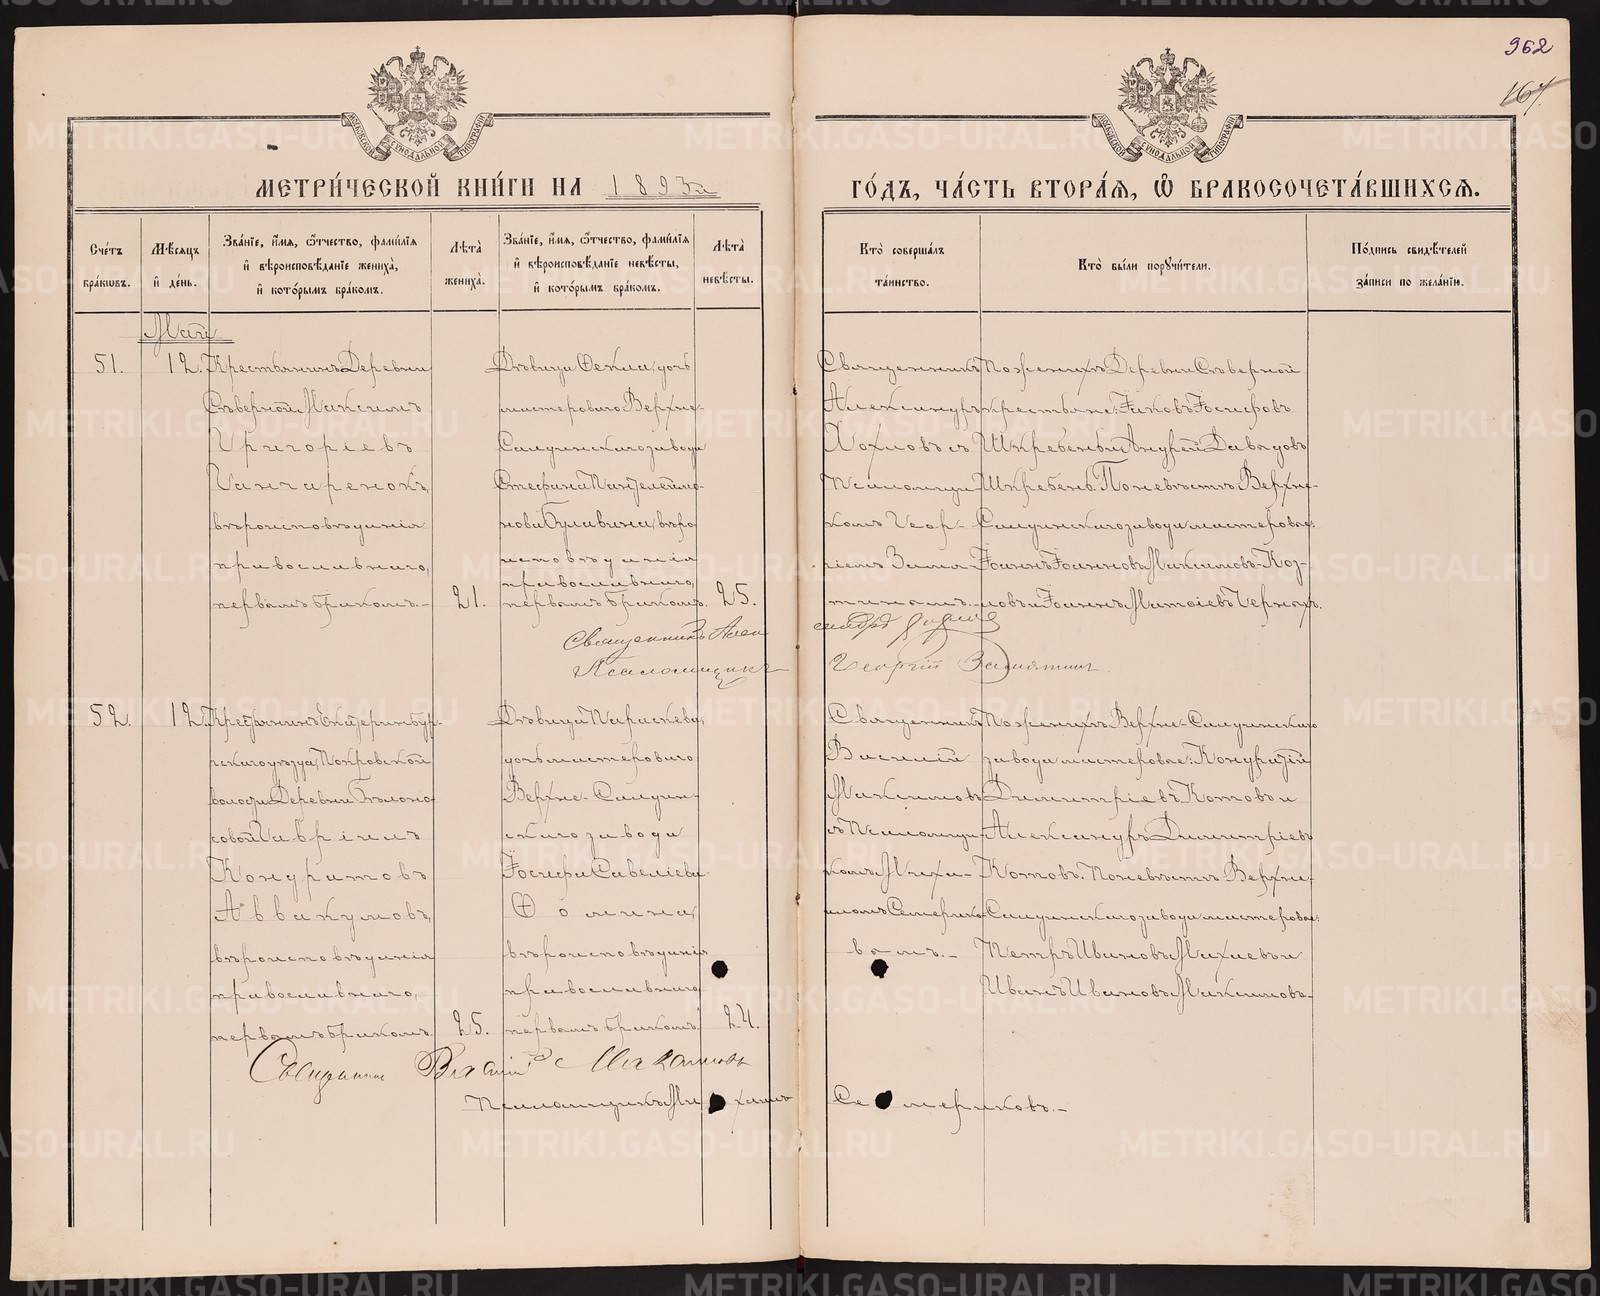 962
167.
МОСКОВСКОЙ СѴНОДАЛЬНОЙ ТИПОГРАФІИ
МОСКОВСКОЙ СѴНОДАЛЬНОЙ ТИПОГРАФІИ
МЕТРИ́ЧЕСКОЙ КНИ́ГИ НА 1893й
ГО́ДЪ, ЧА́СТЬ ВТОРА́Я, Ѡ БРАКОСОЧЕТА́ВШИХСЯ.
Сче́тъ бра́кѡвъ.
Мѣ́сяцъ и҆ де́нь.
Зва́нїе, и҆́мя, ѻ҆́тчество, фами́лїя и҆ вѣроисповѣ́данїе жениха̀, и҆ кото́рымъ бра́комъ.
Лѣта̀ жениха̀.
Зва́нїе, и҆́мя, ѻ҆́тчество, фами́лїя и҆ вѣроисповѣ́данїе невѣ́сты, и҆ кото́рымъ бра́комъ.
Лѣта̀ невѣ́сты.
Кто̀ соверша́лъ та́инство.
Кто̀ бы́ли порꙋчи́тели.
По́дпись свидѣ́телей за́писи по жела́нїю.
Май
51.
12.
Крестьянинъ Деревни
Сѣверной Максимъ
Григоріевъ
Ганчаренокъ,
вѣроисповѣданія
православнаго,
первымъ бракомъ.-
21.
Дѣвица Ѳекла, дочь
мастероваго Верхне-
Салдинскаго завода
Стефана Пантелеймо-
нова Булавина, вѣро
исповѣданія
православнаго,
первымъ бракомъ.
25.
Священникъ
Александръ
Хохловъ съ
Псаломщи-
комъ Геор-
гіемъ Замя-
тинымъ.-
По женихѣ Деревни Сѣверной
крестьяне: Іаковъ Іосифовъ
Шкребень и Андрей Давыдовъ
Шкребень. По невѣстѣ Верхне-
Салдинскаго завода мастеровые:
Іоаннъ Іоанновъ Максимовъ Коз-
ловъ и Іоаннъ Матѳіевъ Черныхъ.
Священникъ Александръ Хохловъ
Псаломщикъ Георгій Замятинъ
52.
12.
Крестьянинъ Екатеринбур-
гскаго уѣзда, Покровской
волости Деревни Бѣлоно-
совой Гавріилъ
Кондратовъ
Аввакумовъ,
вѣроисповѣданія
православнаго,
первымъ бракомъ.
25.
Дѣвица Параскева,
дочь мастероваго
Верхне-Салдин-
скаго завода
Іосифа Савеліева
Ѳомина,
вѣроисповѣданія
православнаго
первымъ бракомъ.
24.
Священникъ
Василій
Максимовъ
съ Псаломщи-
комъ Миха-
иломъ Семерико-
вымъ.-
По женихѣ Верхне-Салдинскаго
завода мастеровые: Кондратій
Димитріевъ Котовъ и
Александръ Димитріевъ
Котовъ. По невѣстѣ Верхне-
Салдинскаго завода мастеровые:
Петръ Ивановъ Михѣевъ и
Иванъ Ивановъ Максимовъ.
Священникъ Василій Максимовъ
Псаломщикъ Михаилъ Семериковъ.-